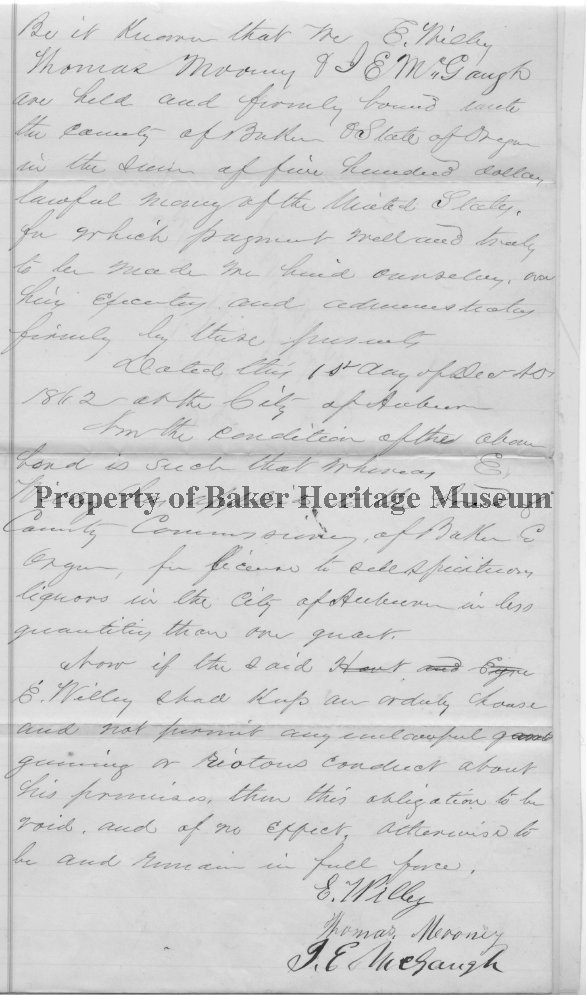 Be it Known that We E. Willey
Thomas Mooney & J E McGaugh
are held and firmly bound unto
the County of Baker & State of Oregon
in the Sum of five hundred dollars
lawful money of the United States.
for which payment well and truly
to be made we bind ourselves, our
heirs Executors and administrators
firmly by these presents
Dated this 1st day of Dec AD
1862 at the City of Auburn
Now the Condition of the above
bond is such that whereas E.
Property of Baker Heritage Museum
County Commissioners, of Baker Co
Oregon, for license to sell spirituous
liquors in the City of Auburn in less
quantities than one quart.
Now if the said Hart and
E. Willey shall Keep an orderly house
and not permit any unlawful
gaming or Riotous conduct about
his premises, then this obligation to be
void, and of no Effect, otherwise to
be and remain in full force.
E. Willey
Thomas Mooney
J. E. McGaugh